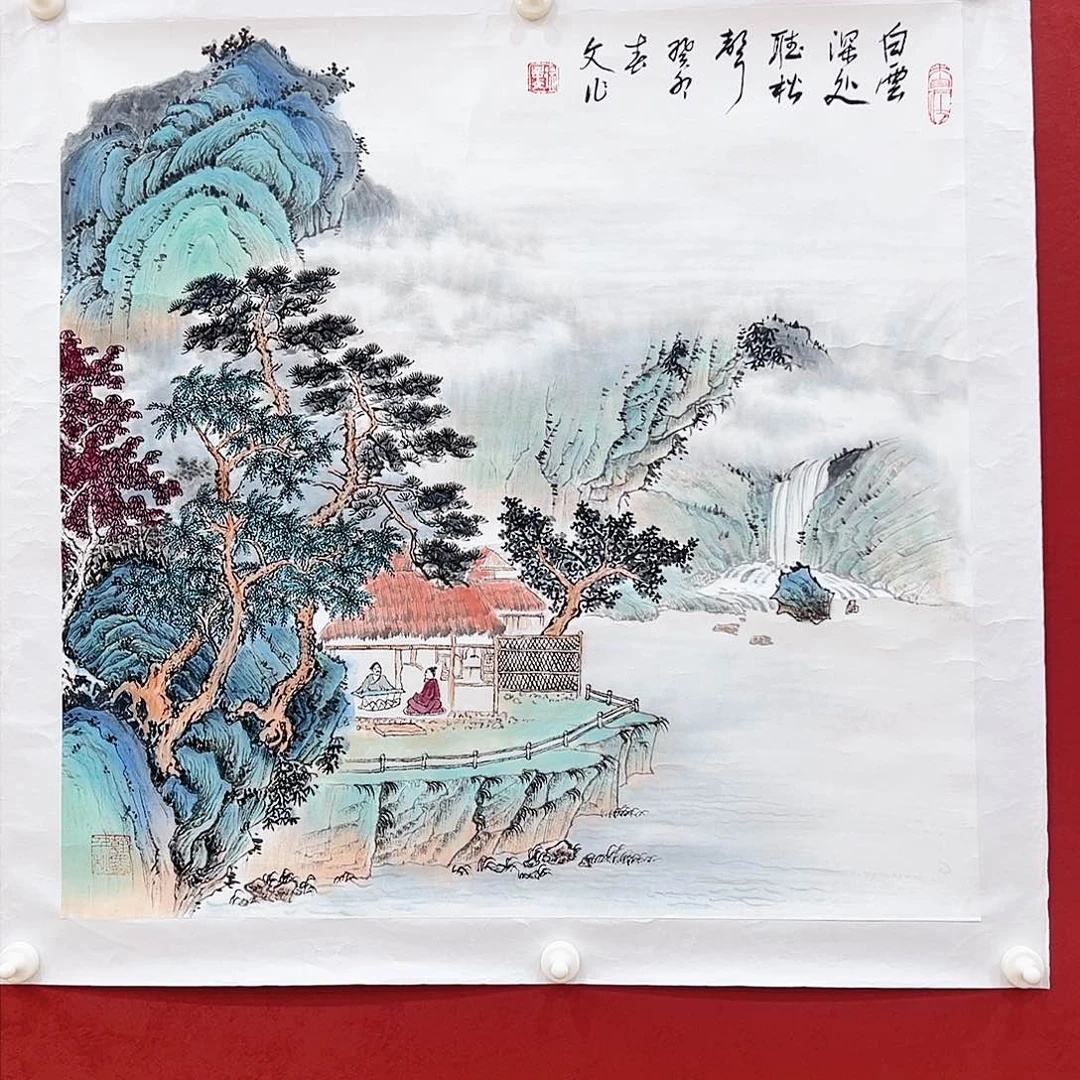 白雲
深处
聴松
聲
癸卯
春
文作